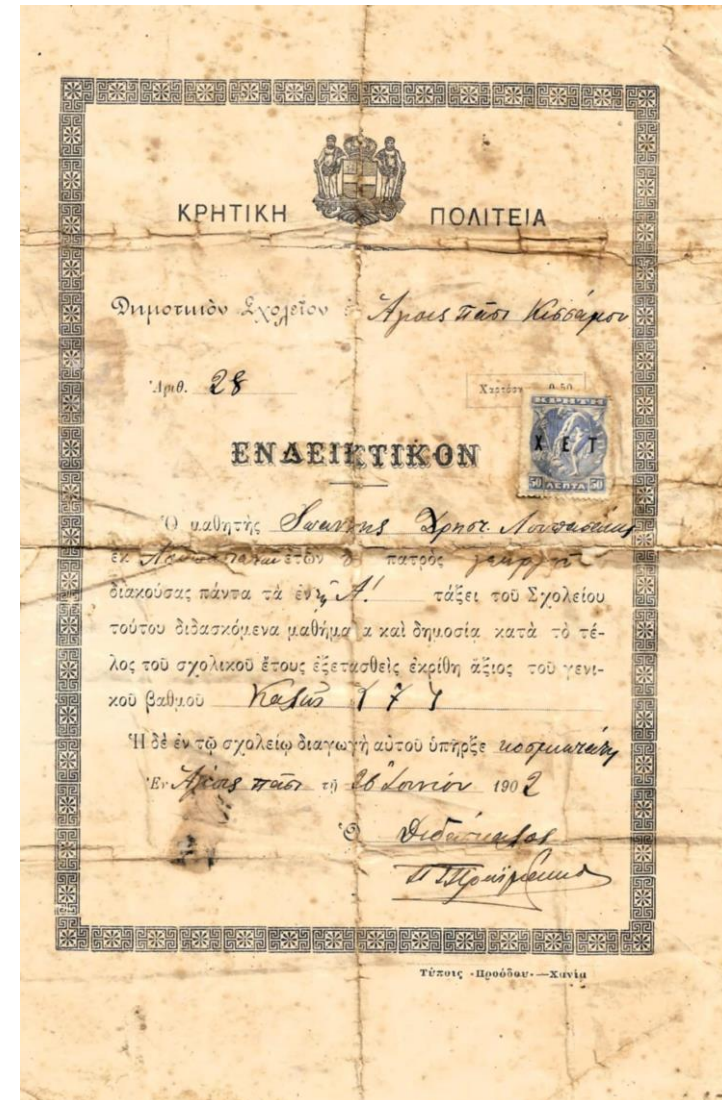 ΚΡΗΤΙΚΗ ΠΟΛΙΤΕΙΑ
Δημοτικὸν Σχολεῖον ἐν Ἁγίοις Πᾶσι Κισσάμου
Ἀριθ. 28
Χαρτόσημ 0.50
ΚΡΗΤΗ
Χ Ε Τ
50 ΛΕΠΤΑ 50
ΕΝΔΕΙΚΤΙΚΟΝ
Ὁ μαθητὴς Ἰωάννης Χρηστ.
ἐκ ἐτῶν πατρὸς
διακούσας πάντα τὰ ἐν τῇ Α! τάξει τοῦ Σχολείου
τούτου διδασκόμενα μαθήματα καὶ δημοσίᾳ κατὰ τὸ τέ-
λος τοῦ σχολικοῦ ἔτους ἐξετασθεὶς ἐκρίθη ἄξιος τοῦ γενι-
κοῦ βαθμοῦ Καλῶς
Ἡ δὲ ἐν τῷ σχολείῳ διαγωγὴ αὐτοῦ ὑπῆρξε κοσμιωτάτη
Ἐν Ἁγίοις Πᾶσι τῇ 26 Ἰουνίου 1902
Ὁ Διδάσκαλος
Τύποις «Προόδου».—Χανία